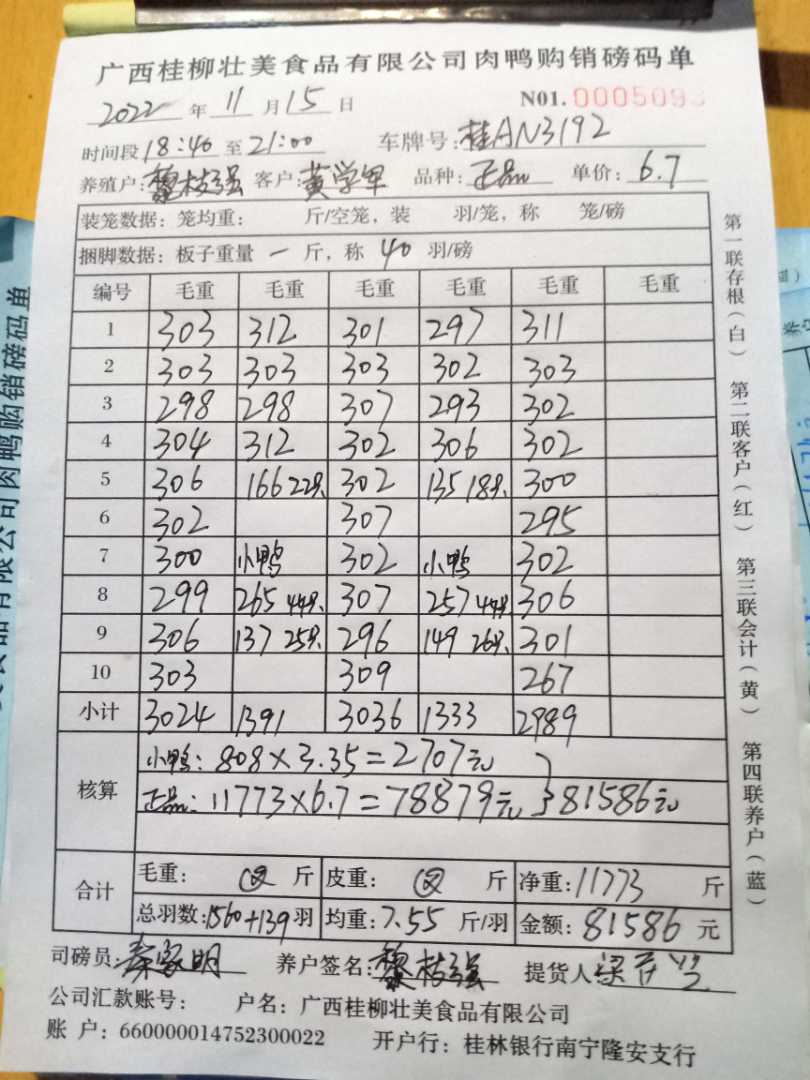 广西桂柳壮美食品有限公司肉鸭购销磅码单
2022年11月15日 N01.000509
时间段18:40至21:00 车牌号:桂AN3192
养殖户:黎枝强 客户:黄学军 品种:正品 单价:6.7
装笼数据:笼均重: 斤/空笼,装 羽/笼,称 笼/磅
捆脚数据:板子重量 一 斤,称 40 羽/磅
编号 毛重 毛重 毛重 毛重 毛重 毛重
1 303 312 301 297 311
2 303 303 303 302 303
3 298 298 307 293 302
4 304 312 302 306 302
5 306 166 22只 302 135 18只 300
6 302 307 295
7 300 小鸭 302 小鸭 302
8 299 265 44只 307 257 44只 306
9 306 137 25只 296 149 26只 301
10 303 309 267
小计 3024 1391 3036 1333 2989
核算 小鸭:808×3.35=2707元
正品:11773×6.7=78879元 }81586元
合计 毛重: 斤 皮重: 斤 净重:11773 斤
总羽数:1560+139羽 均重:7.55 斤/羽 金额:81586 元
司磅员:秦家明 养户签名:黎枝强 提货人
公司汇款账号: 户名:广西桂柳壮美食品有限公司
账 户:660000014752300022 开户行:桂林银行南宁隆安支行
第一联存根(白) 第二联客户(红) 第三联会计(黄) 第四联养户(蓝)
公司肉鸭购销磅码单